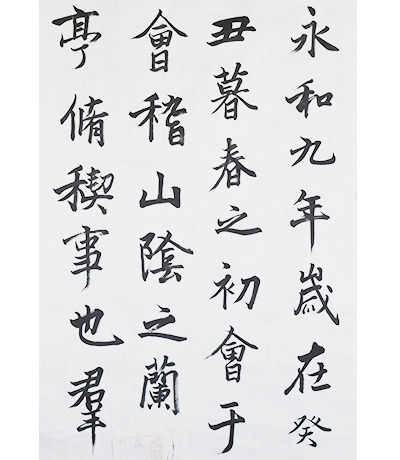 永和九年歲在癸
丑暮春之初會于
會稽山陰之蘭
亭脩稧事也羣